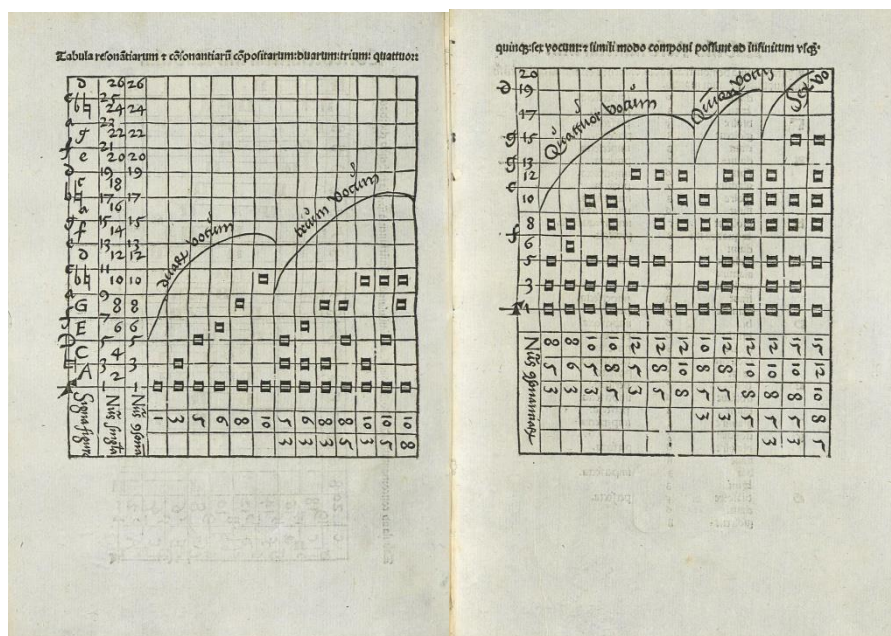 Tabula resonãtiarum ⁊ cõsonantiarũ cõpositarum: duarum: trium: quattuor:
d 26 26
c 25
b♮ 24 24
a 23
22 22
f 21
e 20 20
d 19 19
c 18
♮ 17 17
a 16
g 15 15
f 14
e 13 13
d 12 12
c 11
b♮ 10 10
a 9
G 8 8
7
E 6 6
D 5 5
C 4
3 3
A 2
1 1
duarũ vocum
trium vocum
Signa figura
Nũs
Nũs
1 3 5 6 8 10 5 6 8 8 10 10 10
3 3 3 5 3 5 8
quinqꝫ: sex vocum: ⁊ simili modo componi possunt ad infinitum vsqꝫ.
20
d 19
17
g 15
g 13
12
e
10
8
f
6
5
3
1
Quattuor vocum
Quinqꝫ vocũ
Sex vo
Nũs
8 8 10 10 12 12 12 10 12 12 12 15 15
5 6 5 8 5 8 10 8 8 10 10 10 12
3 3 3 5 3 5 8 5 5 8 8 8 10
3 3 5 5 5 8
3 3 5